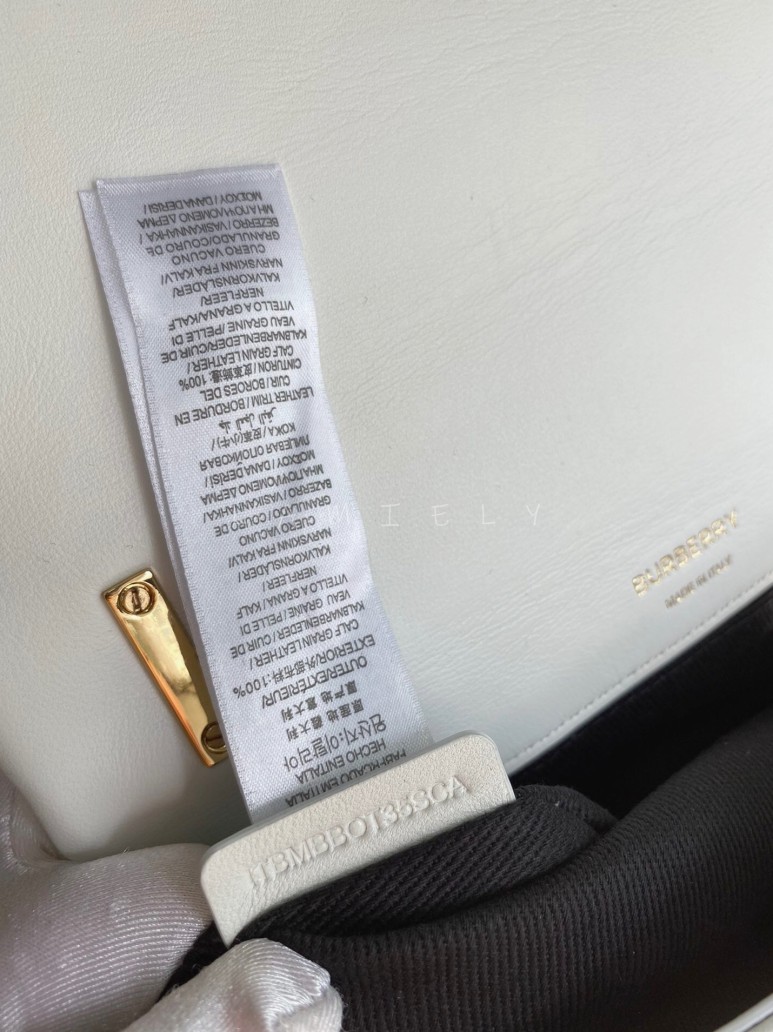 ITALIA
FABRICADO EM ITALIA
HECHO EN ITALIA
원산지:이탈리아
原屋地 義大利
原产地 意大利
OUTER/EXTÉRIEUR/
EXTERIOR/外部布料:100%
CALF GRAIN LEATHER /
KALBNARBENLEDER / CUIR DE
VEAU GRAINE / PELLE DI
VITELLO A GRANA / KALF
NERFLEER /
KALVKORNSLÄDER /
NARVSKINN FRA KALV /
CUERO VACUNO
GRANULADO / COURO DE
BAZERRO / VASIKANNAHKA /
ΜΗ ΑΠΟΨΙΛΩΜΕΝΟ ΔΕΡΜΑ
ΜΟΣΧΟΥ / DANA DERİSİ /
ЛИЦЕВАЯ ОПОЙКОВАЯ
КОЖА / 皮革(小牛) /
LEATHER TRIM / BORDURE EN
CUIR / BORDES DEL
CINTURON / 皮革飾邊: 100%
CALF GRAIN LEATHER /
KALBNARBENLEDER/CUIR DE
VEAU GRAINE / PELLE DI
VITELLO A GRANA/KALF
NERFLEER/
KALVKORNSLÄDER/
NARVSKINN FRA KALV/
CUERO VACUNO
GRANULADO/COURO DE
BEZERRO / VASIKANNAHKA /
ΜΗ ΑΠΟΨΙΛΩΜΕΝΟ ΔΕΡΜΑ
ΜΟΣΧΟΥ / DANA DERİSİ /
MIELY
BURBERRY
MADE IN ITALY